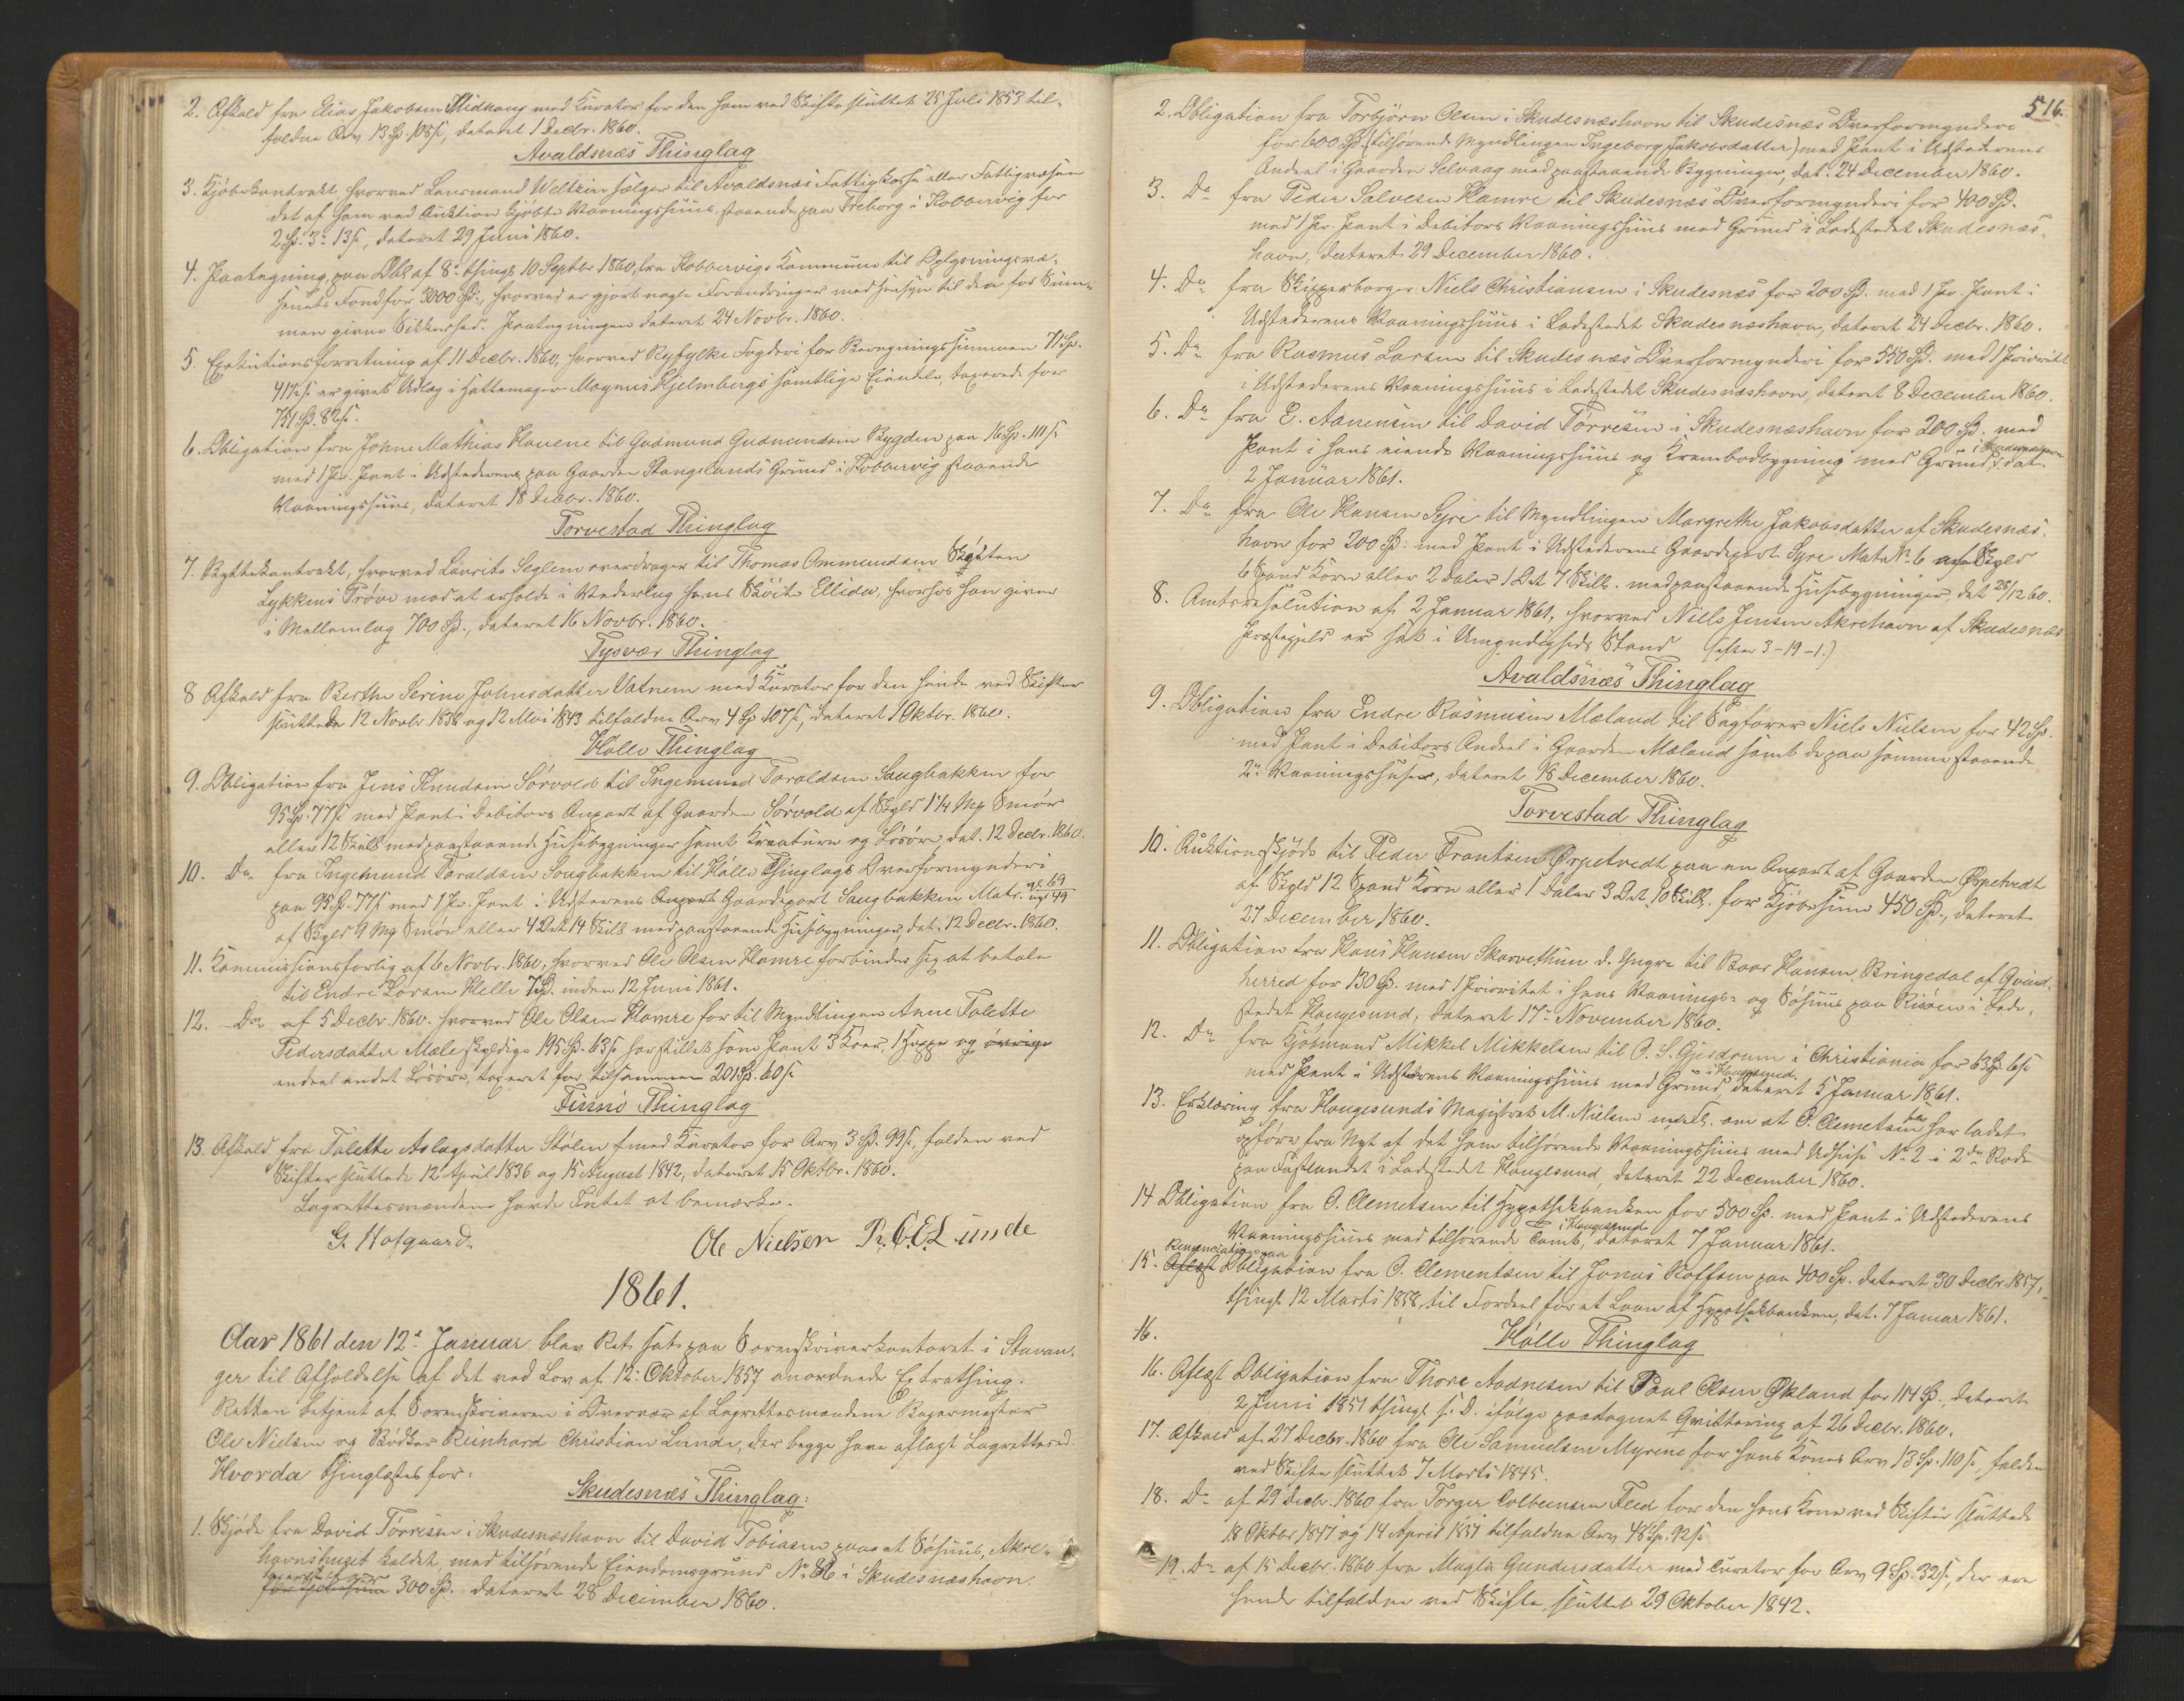 2. Afkald fra Elias Jakobsen Midhaug med Kurator for den ham ved Skifte sluttet 25 Juli 1853 til-
faldne Arv 13 Sp. 108 s, dateret 1 Decbr. 1860.
Avaldsnæs Thinglag
3. Kjöbekontrakt, hvorved Lensmand Weltzin sælger til Avaldsnæs Fattigkasse eller Fattigvæsen
det af ham ved Auktion kjöbte Vaaningshuus, staaende paa Treborg i Kobbervig for
2 Sp. 3 13 s, dateret 29 Juni 1860.
4. Paategning paa Obl. af 8 thingl. 10 Septbr. 1860, fra Kobbervigs Kommune til Oplysningsvæ-
senets Fond for 3000 Spd., hvorved er gjort nogle Forandringer med Hensyn til den for Sum-
men givne Sikkerhed. Paategningen dateret 24 Novbr. 1860.
5. Exekutionsforretning af 11 Decbr. 1860, hvorved Ryfylke Fogderi for Beregningssummen 71 Sp.
41½ s er givet Udlæg i Hattemager Magnus Hjelmbergs samtlige Eiendele, taxerede for
751 Sp. 82 s.
6. Obligation fra Johne Mathias Hauene til Gudmund Gudmundsen Bygden paa 16 Sp. 111 s
med 1 Pr. Pant i Udstederens paa Gaarden Stangelands Grund i Kobbervig staaende
Vaaningshuus, dateret 18 Decbr. 1860.
Torvestad Thinglag
7. Byttekontrakt, hvorved Laurits Seglem overdrager til Thomas Ommundsen Skøiten
Lykkens Prøve mod at erholde i Vederlag hans Skøite Ellida, hvorhos han giver
i Mellemlag 700 Sp., dateret 16 Novbr. 1860.
Tysvær Thinglag
8 Afkald fra Berthe Serine Johnsdatter Vatnem med Kurator for den hende ved Skifter
sluttede 12 Novbr. 1838 og 12 Mai 1843 tilfaldne Arv 4 Sp. 107 s, dateret 1 Oktbr. 1860.
Hölle Thinglag
9. Obligation fra Jens Knudsen Sörvold til Ingemund Taraldsen Saugbakken for
95 Sp. 77 s med Pant i Debitors Anpart af Gaarden Sörvold af Skyld 1¼ Mg Smör
eller 12 Skill. med paastaaende Husebygninger samt Kreaturer og Lösöre, dat. 12 Decbr. 1860.
10. Do fra Ingemund Taraldsen Saugbakken til Hölle Thinglags Overformynderi
paa 95 Sp. 77 s med 1 Pr. Pant i Udstederens Anpart Gaardepart Saugbakken Matr. N. 69
af Skyld 9 Mg Smör eller 4 Ort 14 Skill. med paastaaende Husebygninger, dat. 12 Decbr. 1860.
11. Kommissionsforlig af 6 Novbr. 1860, hvorved Ole Olsen Hamre forbinder sig at betale
til Endre Larsen Helle 7 Sp. inden 12 Juni 1861.
12. Do af 5 Decbr. 1860. hvorved Ole Olsen Hamre for til Myndlingen Anne Talette
Pedersdatter Mæle skyldige 195 Sp. 63 s har stillet som Pant 3 Kører, 1 Hoppe og øvrige
endeel andet Lösöre, taxeret for tilsammen 201 Sp. 60 s
Finnö Thinglag
13. Afkald fra Talette Aslagsdatter Stölen med Kurator for Arv 3 Sp. 99 s, falden ved
Skifter sluttede 12 April 1836 og 15 August 1842, dateret 15 Oktbr. 1860.
Lagrettesmændene havde Intet at bemærke.
G. Hofgaard. Ole Nielsen R. C. E. Lunde
1861.
Aar 1861 den 12te Januar blev Ret sat paa Sorenskriverkontoret i Stavan-
ger til Afholdelse af det ved Lov af 12. Oktober 1857 anordnede Extrathing.
Retten betjent af Sorenskriveren i Overvær af Lagrettesmændene Bagermester
Ole Nielsen og Bødker Reinhard Christian Lunde, der begge have aflagt Lagretteseed.
Hvorda thinglæstes for:
Skudesnæs Thinglag:
1. Skjöde fra David Törresen i Skudesnæshavn til David Tobiasen paa et Söhuus, Akre-
havnshuset kaldet, med tilhörende Eiendomsgrund No 86 i Skudesnæshavn
for Kjøbesum 300 Sp. dateret 28 December 1860.
516.
2. Obligation fra Torbjörn Olsen i Skudesnæshavn til Skudesnæs Overformynderi
for 600 Sp. (tilhörende Myndlingen Ingeborg Jakobsdatter) med Pant i Udstederens
Andeel i Gaarden Selvaag med paastaaende Bygninger, dat. 24 December 1860.
3. Do fra Peder Salvesen Hamre til Skudesnæs Overformynderi for 400 Sp.
med 1 Pr. Pant i Debitors Vaaningshuus med Grund i Ladestedet Skudesnæs-
havn, dateret 29 December 1860.
4. Do fra Skipperborger Niels Christiansen i Skudesnæs for 200 Sp. med 1 Pr. Pant i
Udstederens Vaaningshuus i Ladestedet Skudesnæshavn, dateret 24 Decbr. 1860.
5. Do fra Rasmus Larsen til Skudesnæs Overformynderi for 550 Sp. med 1 Prioritet
i Udstederens Vaaningshuus i Ladestedet Skudesnæshavn, dateret 8 December 1860.
6. Do fra E. Aanensen til David Törresen i Skudesnæshavn for 200 Sp. med
Pant i hans eiende Vaaningshuus og Krambodbygning med Grund i Skudesnæshavn, dat.
2 Januar 1861.
7. Do fra Ole Hansen Syre til Myndlingen Margrethe Jakobsdatter af Skudesnæs-
havn for 200 Sp. med Pant i Udstederens Gaardepart Syre Matr. No 6 af Skyld
6 Spand Korn eller 2 Daler 1 Ort 7 Skill. med paastaaende Husebygninger, dat 28/12 60.
8. Amtsresolution af 2 Januar 1861, hvorved Niels Jensen Akrehavn af Skudesnæs
Præstegjeld er sat i Umyndigheds Stand (efter 3-19-1.)
Avaldsnæs Thinglag
9. Obligation fra Endre Rasmusen Mæland til Sagförer Niels Nielsen for 42 Sp.
med Pant i Debitors Andeel i Gaarden Mæland samt de paa samme staaende
2de Vaaningshuse, dateret 18 December 1860.
Torvestad Thinglag
10. Auktionsskjöde til Peder Frantsen Ørpetvedt paa en Anpart af Gaarden Ørpetvedt
af Skyld 12 Spand Korn eller 1 Daler 3 Ort 10 Skill. for Kjöbesum 450 Sp., dateret
27 December 1860.
11. Obligation fra Hans Hansen Skarvethun d. Yngre til Baar Hansen Bringedal af Qvind-
herred for 130 Sp. med 1 Prioritet i hans Vaanings- og Söhuus paa Risöen i Lade-
stedet Haugesund, dateret 17de November 1860.
12. Do fra Kjöbmand Mikkel Mikkelsen til O. S. Gjerdrum i Christiania for 63 Sp. 6 s
med Pant i Udstederens Vaaningshuus med Grund i Haugesund dateret 5 Januar 1861.
13. Erklæring fra Haugesunds Magistrat M. Nielsen m. fl. om at O. Clemetsen har ladet
opföre fra Nyt af det ham tilhörende Vaaningshuus med Udhuse No 2 i 2den Rode
paa Fastlandet i Ladestedet Haugesund, dateret 22 December 1860.
14 Obligation fra O. Clemetsen til Hypothekbanken for 500 Sp. med Pant i Udstederens
Vaaningshuus med tilhörende Tomt i Haugesund, dateret 7 Januar 1861.
15. Aflæst Renunciation paa Obligation fra O. Clementsen til Jonas Roffsen paa 400 Sp. dateret 30 Decbr. 1857,
thingl. 12 Marts 1858, til Fordeel for et Laan af Hypothekbanken, dat. 7 Januar 1861.
16.
Hölle Thinglag
16. Aflæst Obligation fra Thore Aadnesen til Poul Olsen Økland for 114 Sp., dateret
2 Juni 1851 thingl. s. D. ifølge paategnet Qvittering af 26 Decbr. 1860.
17. Afkald af 27 Decbr. 1860 fra Ole Samuelsen Myrene for hans Kones Arv 13 Sp. 110 s, falden
ved Skifte sluttet 7 Marts 1845.
18. Do af 29 Decbr. 1860 fra Torger Colbensen Feed for den hans Kone ved Skifter sluttede
18 Oktbr. 1847 og 14 April 1857 tilfaldne Arv 48 Sp. 92 s.
19. Do af 15 Decbr. 1860 fra Magla Gundersdatter med Curator for Arv 9 Sp. 32 s, der er
hende tilfalden ved Skifte, sluttet 29 Oktober 1842.